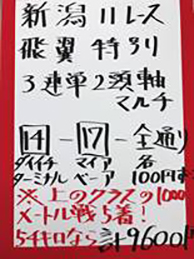 新潟11レース
飛翼特別
3連単2頭軸
マルチ
14-17-全通り
ダイイチ マイア 各
ターミナル ベーア 100円
※上のクラスの1000
メートル戦5着!
54キロなら 計9600円